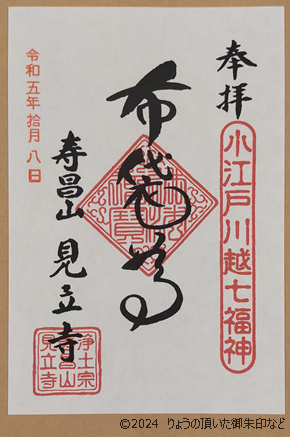 奉拝
小江戸川越七福神
布袋尊
寿昌山 見立寺
令和五年拾月八日
浄土宗
寿昌山
見立寺
©2024 りょうの頂いた御朱印など